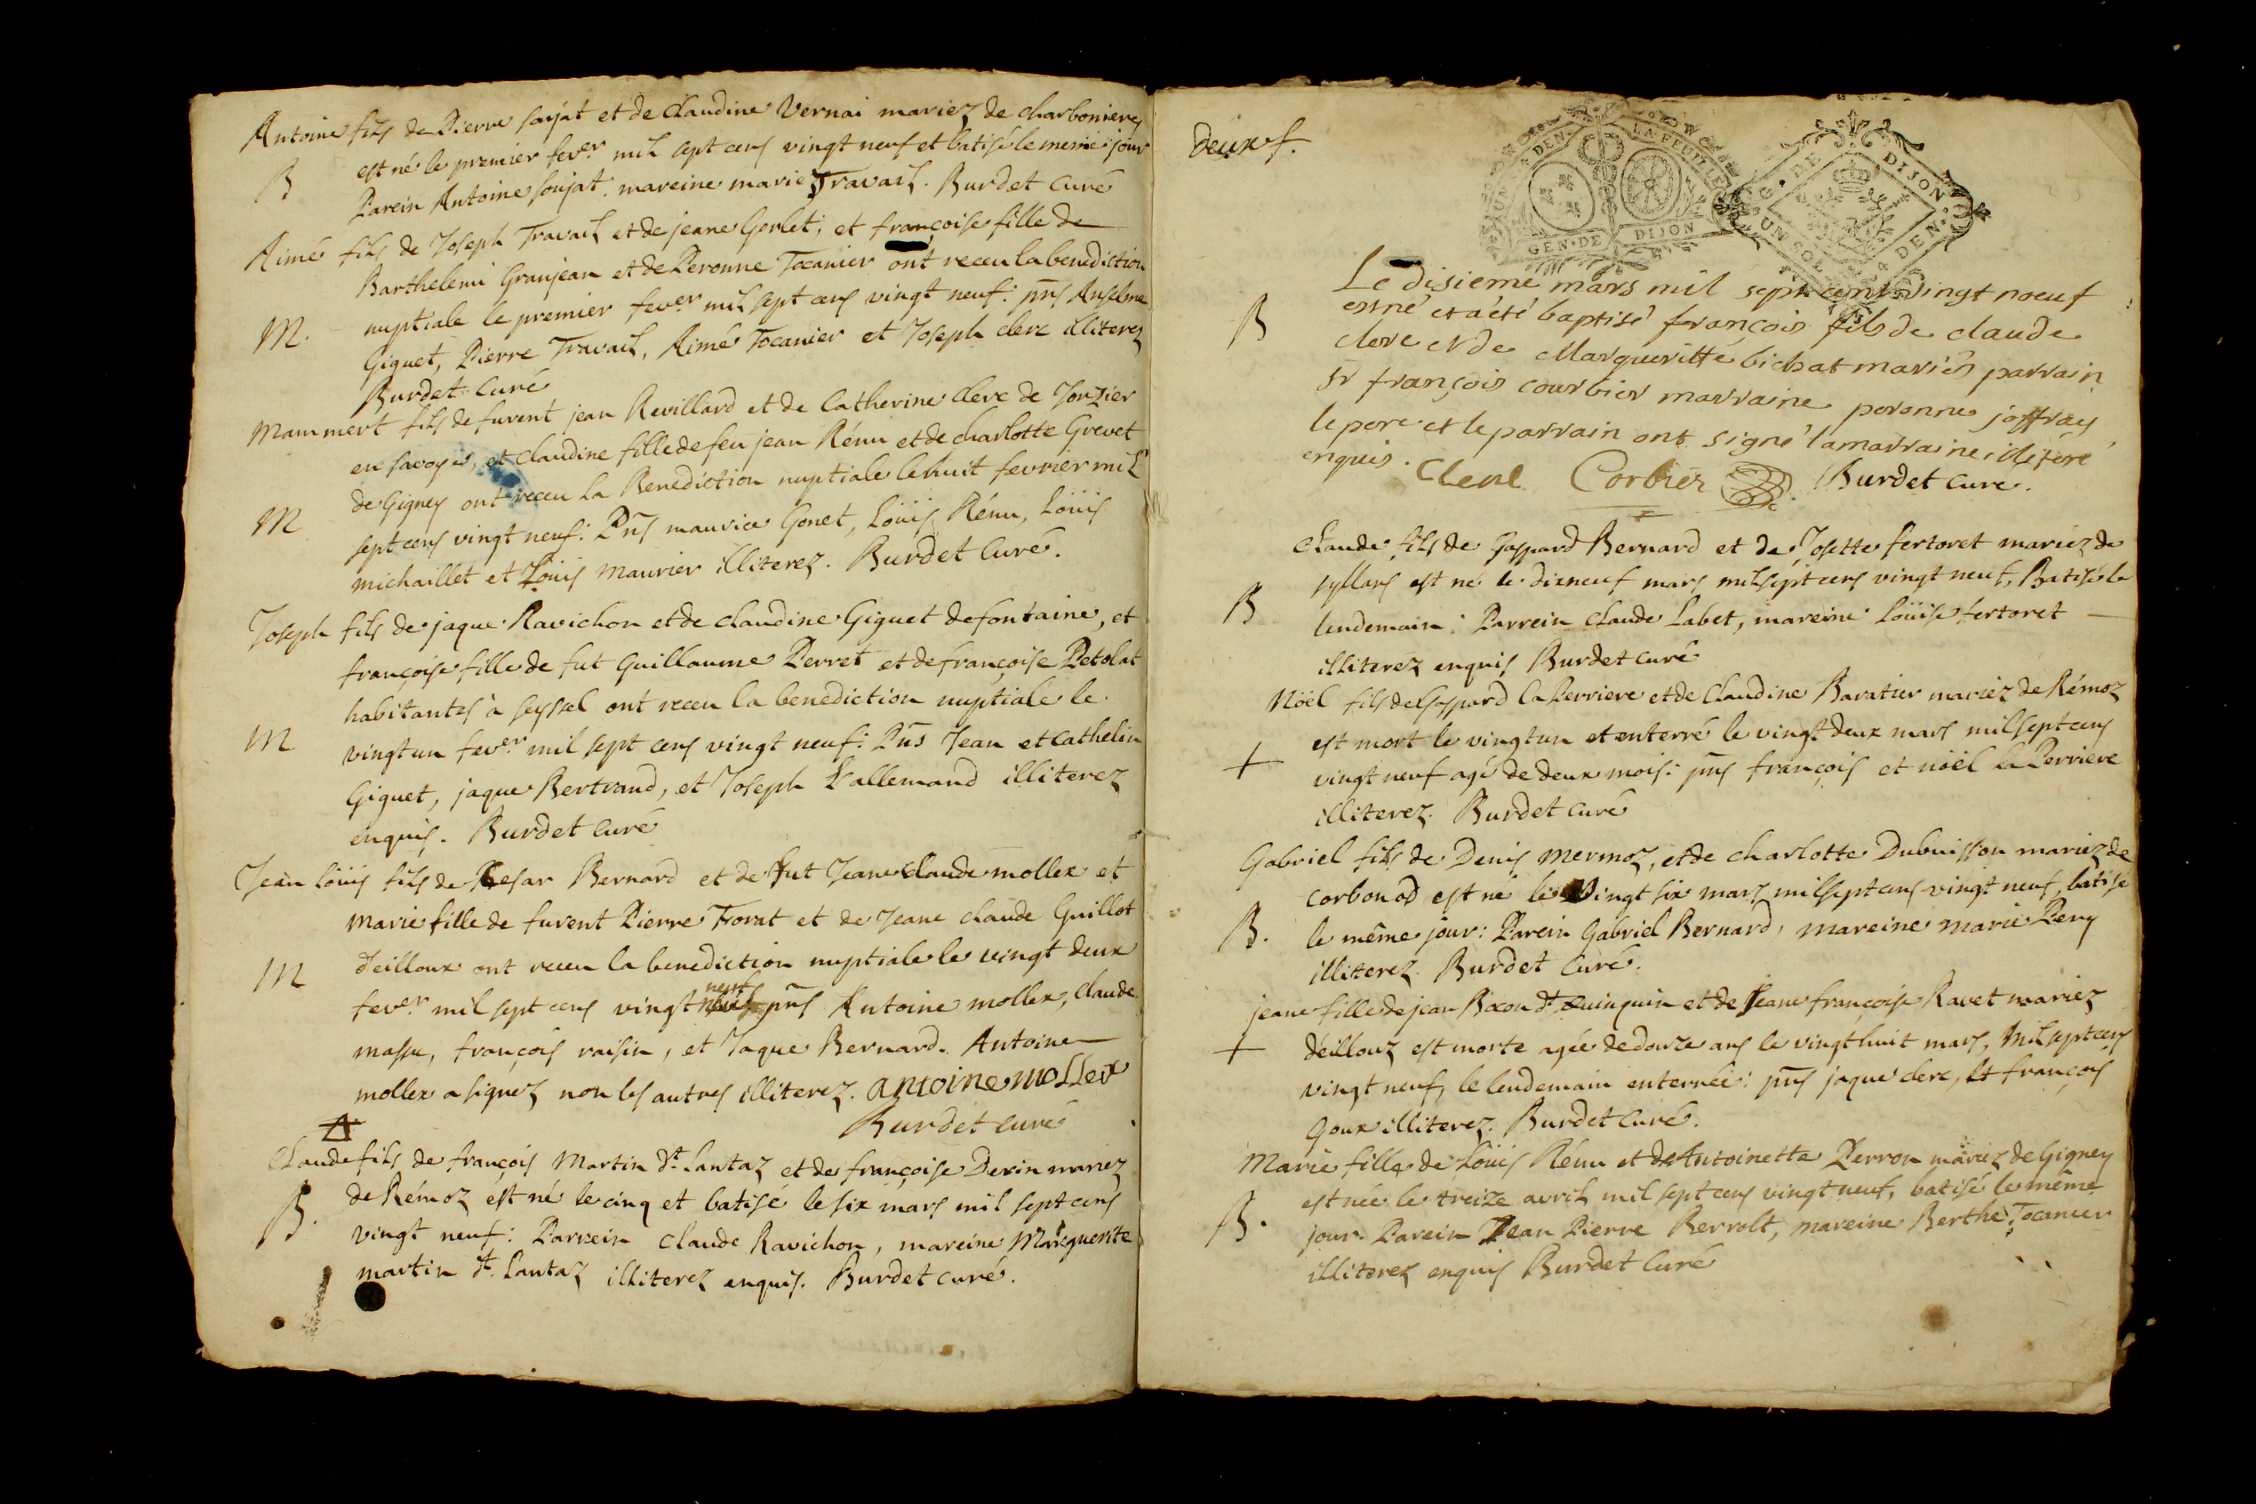 Antoine fils de Pierre soyat et de Claudine Vernai mariez de charbonieres
B est né le premier fever mil sept cens vingt neuf et batisé le meme jour
Parein Antoine soujat. mareine marie Travail. Burdet Curé
Aimé fils de Joseph Travail et de jeane Gerlet; et françoise fille de
Barthelemi Granjean et de Peronne Tocanier ont receu la benediction
M. nuptiale le premier fever mil sept cens vingt neuf: pns Anselme
Giguet, Pierre Travail, Aimé Tocanier et Joseph clerc illiterez
Burdet Curé
Mammert fils de furent jean Revillard et de Catherine clerc de Jonzier
en savoye, et Claudine fille de feu jean Rému et de charlotte Grevet
de Gigney ont receu la Benediction nuptiale le huit fevrier mil
M sept cens vingt neuf: Pns maurice Gonet, Loüis Rému, Loüis
michaillet et Loüis maurier illiterez. Burdet Curé.
Joseph fils de jaque Ravichon et de Claudine Giguet de fontaine, et
françoise fille de fut Guillaume Perret et de françoise Petolat
habitantes à seyssel ont receu la benediction nuptiale le
M vingt un fever mil sept cens vingt neuf: Pns Jean et Cathelin
Giguet, jaque Bertrand, et Joseph Lallemand illiterez
enquis. Burdet Curé
Jean Loüis fils de Cesar Bernard et de fut Jeane Claude mollex et
Marie fille de furent Pierre Trorat et de Jeane Claude Guillot
M d'eilloux ont receu la benediction nuptiale le vingt deux
neuf
fever mil sept cens vingt pns Antoine mollex, Claude
massu, françois raisin, et Jaque Bernard. Antoine
mollex a signez non les autres illiterez. antoine mollex
Burdet Curé
Claude fils de françois Martin dt. Lantaz et de françoise Derin mariez
B. de Rémoz est né le cinq et batisé le six mars mil sept cens
vingt neuf: Parrein Claude Ravichon, mareine Marguerite
martin dt. Lantaz illiterez enquis. Burdet Curé.
deux f.
UN DEN. LA FEUILLE
GEN. DE DIJON
G. DE DIJON
UN SOL 4 DEN.
Le disieme mars mil sept cents vingt noeuf
B est né et a été baptisé françois fils de claude
clerc et de Margueritte bichat mariés parrain
sr françois courbier marraine peronne joffray
le pere et le parrain ont signé la marraine illiteré
enquis. Clerc Corbier Burdet Curé.
Claude fils de Gaspard Bernard et de Josette fertoret mariez de
B syllans est né le dixneuf mars mil sept cens vingt neuf, Batisé le
lendemain: Parrein Claude Labet, mareine Loüise fertoret
illiterez enquis Burdet Curé
Nöel fils de Gaspard la Perriere et de Claudine Baratier mariez de Rémoz
+ est mort le vingt un et enterré le vingt deux mars mil sept cens
vingt neuf agé de deux mois: pns françois et nöel la Perriere
illiterez. Burdet Curé
Gabriel fils de Denis Mermoz, et de charlotte Dubuisson mariez de
corbonod est né le vingt six mars mil sept cens vingt neuf, batisé
B. le même jour: Parein Gabriel Bernard, mareine marie Peny
illiterez. Burdet Curé.
jeane fille de jean Boxon dt quinquin et de Jeane françoise Ravet mariez
+ d'eilloux est morte agée de douze ans le vingt huit mars, mil sept cens
vingt neuf, le lendemain enterrée: pns jaque clerc, et françois
Goux illiterez. Burdet Curé.
Marie fille de Loüis Rému et de Antoinette Perron mariez de Gigney
est née le treize avril mil sept cens vingt neuf, batisé le même
B. jour. Parein Jean Pierre Berrolt, mareine Berthe Tocanier
illiterez enquis Burdet Curé